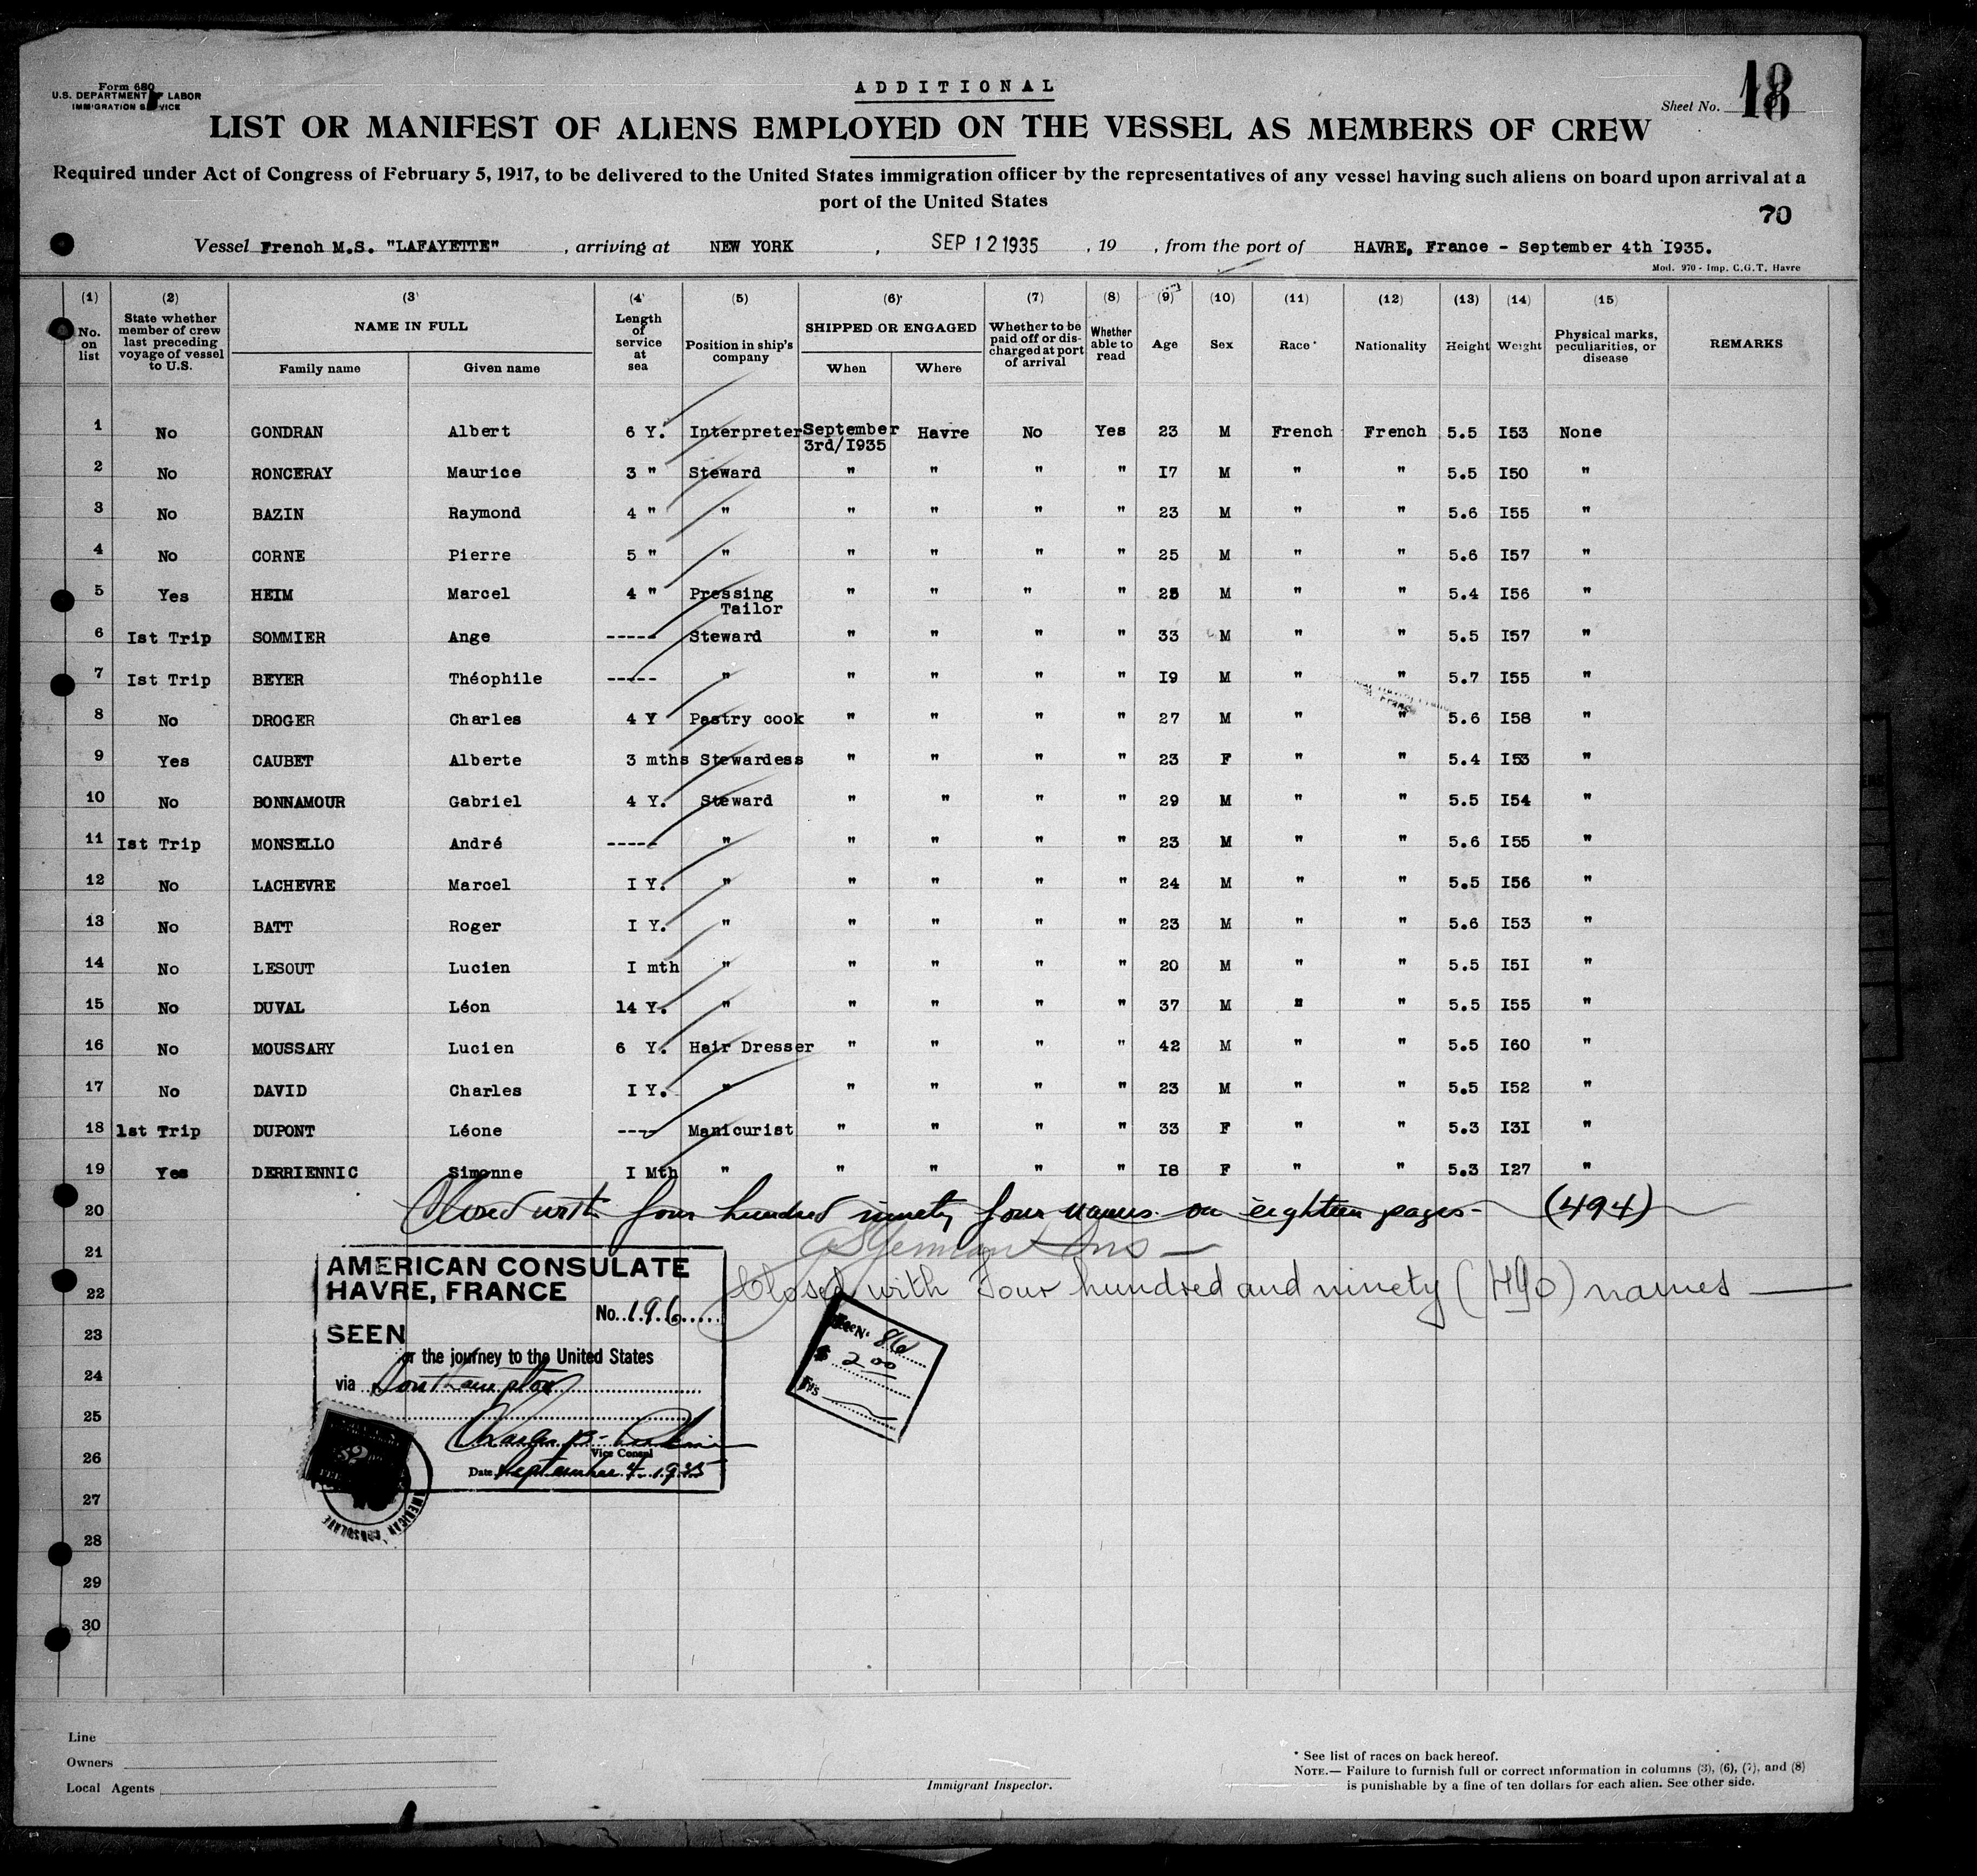 Form 680
U.S. DEPARTMENT OF LABOR
IMMIGRATION SERVICE
ADDITIONAL
Sheet No. 18
LIST OR MANIFEST OF ALIENS EMPLOYED ON THE VESSEL AS MEMBERS OF CREW
Required under Act of Congress of February 5, 1917, to be delivered to the United States immigration officer by the representatives of any vessel having such aliens on board upon arrival at a
port of the United States
70
Vessel French M.S. "LAFAYETTE" , arriving at NEW YORK , SEP 12 1935 , 19 , from the port of HAVRE, France - September 4th I935.
Mod. 970 - Imp. C.G.T. Havre
(1) (2) (3) (4) (5) (6) (7) (8) (9) (10) (11) (12) (13) (14) (15)
No. on list State whether member of crew last preceding voyage of vessel to U.S. NAME IN FULL Length of service at sea Position in ship's company SHIPPED OR ENGAGED Whether to be paid off or discharged at port of arrival Whether able to read Age Sex Race* Nationality Height Weight Physical marks, peculiarities, or disease REMARKS
Family name Given name When Where
1 No GONDRAN Albert 6 Y. Interpreter September 3rd/I935 Havre No Yes 23 M French French 5.5 I53 None
2 No RONCERAY Maurice 3 " Steward " " " " I7 M " " 5.5 I50 "
3 No BAZIN Raymond 4 " " " " " " 23 M " " 5.6 I55 "
4 No CORNE Pierre 5 " " " " " " 25 M " " 5.6 I57 "
5 Yes HEIM Marcel 4 " Pressing Tailor " " " " 25 M " " 5.4 I56 "
6 Ist Trip SOMMIER Ange ----- Steward " " " " 33 M " " 5.5 I57 "
7 Ist Trip BEYER Théophile ----- " " " " " I9 M " " 5.7 I55 "
8 No DROGER Charles 4 Y Pastry cook " " " " 27 M " " 5.6 I58 "
9 Yes CAUBET Alberte 3 mths Stewardess " " " " 23 F " " 5.4 I53 "
10 No BONNAMOUR Gabriel 4 Y. Steward " " " " 29 M " " 5.5 I54 "
11 Ist Trip MONSELLO André ----- " " " " " 23 M " " 5.6 I55 "
12 No LACHEVRE Marcel I Y. " " " " " 24 M " " 5.5 I56 "
13 No BATT Roger I Y. " " " " " 23 M " " 5.6 I53 "
14 No LESOUT Lucien I mth " " " " " 20 M " " 5.5 I5I "
15 No DUVAL Léon 14 Y. " " " " " 37 M " " 5.5 I55 "
16 No MOUSSARY Lucien 6 Y. Hair Dresser " " " " 42 M " " 5.5 I60 "
17 No DAVID Charles I Y. " " " " " 23 M " " 5.5 I52 "
18 1st Trip DUPONT Léone ---- Manicurist " " " " 33 F " " 5.3 I3I "
19 Yes DERRIENNIC Simonne I Mth " " " " " I8 F " " 5.3 I27 "
20 Closed with four hundred ninety four names on eighteen pages - (494)
21
22 Closed with Four hundred and ninety (490) names
23
24
25
26
27
28
29
30
AMERICAN CONSULATE
HAVRE, FRANCE
No. 196
SEEN
or the journey to the United States
via Southampton
Vice Consul
Date September 4. 1935
No. 86
$ 2.00
AMERICAN CONSULATE
Line
Owners
Local Agents
Immigrant Inspector.
* See list of races on back hereof.
NOTE.— Failure to furnish full or correct information in columns (3), (6), (7), and (8)
is punishable by a fine of ten dollars for each alien. See other side.